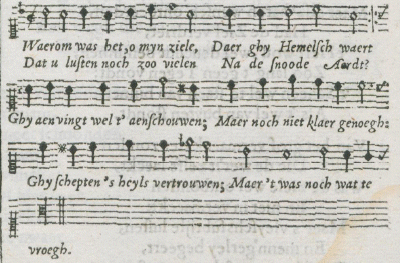 Waerom was het, o myn ziele, Daer ghy Hemelsch waert
Dat u lusten noch zoo vielen Na de snoode Aerdt?
Ghy aenvingt wel t' aenschouwen; Maer noch niet klaer genoegh:
Ghy schepten 's heyls vertrouwen; Maer 't was noch wat te
vroegh.